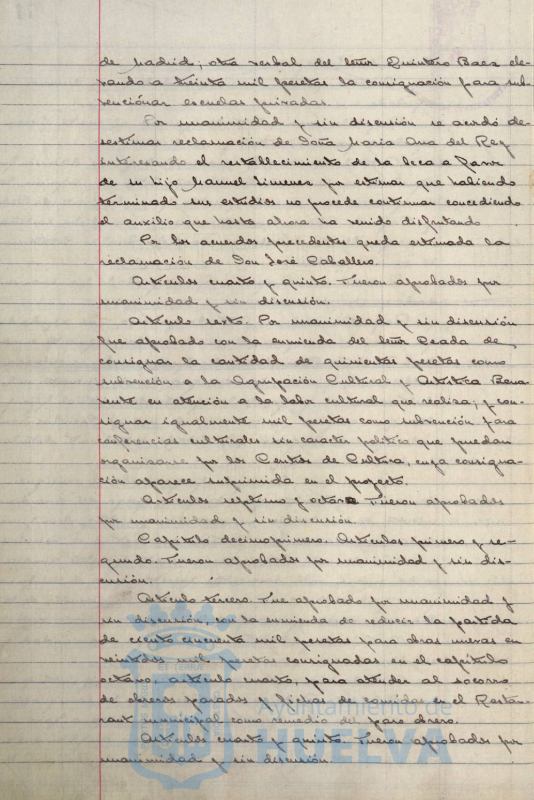 de Madrid; otra verbal del señor Quintero Baez ele-
vando a treinta mil pesetas la consignación para sub-
vencionar escuelas privadas.
Por unanimidad y sin discusión se acordó de-
sestimar reclamación de Doña Maria Ana del Rey
interesando el restablecimiento de la beca a favor
de su hijo Manuel Jimenez por estimar que habiendo
terminado sus estudios no procede continuar concediendo
el auxilio que hasta ahora ha venido disfrutando
Por los acuerdos precedentes queda estimada la
reclamación de Don José Caballero.
Articulos cuarto y quinto. Fueron aprobados por
unanimidad y sin discusión.
Articulo sexto. Por unanimidad y sin discusión
fue aprobado con la enmienda del señor Ceada de
consignar la cantidad de quinientas pesetas como
subvención a la Agrupación Cultural y Artistica Bena-
vente en atención a la labor cultural que realiza; y con-
signar igualmente mil pesetas como subvención para
conferencias culturales sin caracter politico que puedan
organizarse por los Centros de Cultura, cuya consigna-
ción aparece suprimida en el proyecto.
Articulos septimo y octavo. Fueron aprobados
por unanimidad y sin discusión.
Capitulo decimoprimero. Articulos primero y se-
gundo. Fueron aprobados por unanimidad y sin dis-
cusión.
Articulo tercero. Fue aprobado por unanimidad y
sin discusión, con la enmienda de reducir la partida
de ciento cincuenta mil pesetas para obras nuevas en
veintidos mil pesetas consignadas en el capitulo
octavo, articulo cuarto, para atender al socorro
de obreros parados y fichas de comidas en el Restau-
rant municipal como remedio del paro obrero.
Articulos cuarto y quinto. Fueron aprobados por
unanimidad y sin discusión.
Ayuntamiento de
HUELVA